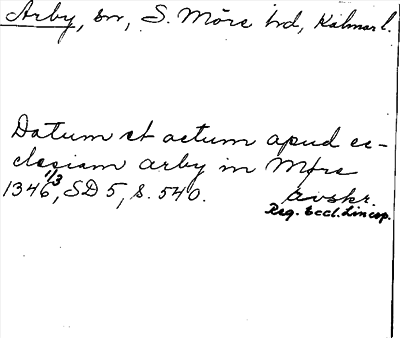 Arby, sn, S. Möre hd, Kalmar l.
Datum et actum apud ec-
clesiam arby in Møre
1346 1/3, SD 5, s. 540. avskr.
Reg. Eccl. Lincop.